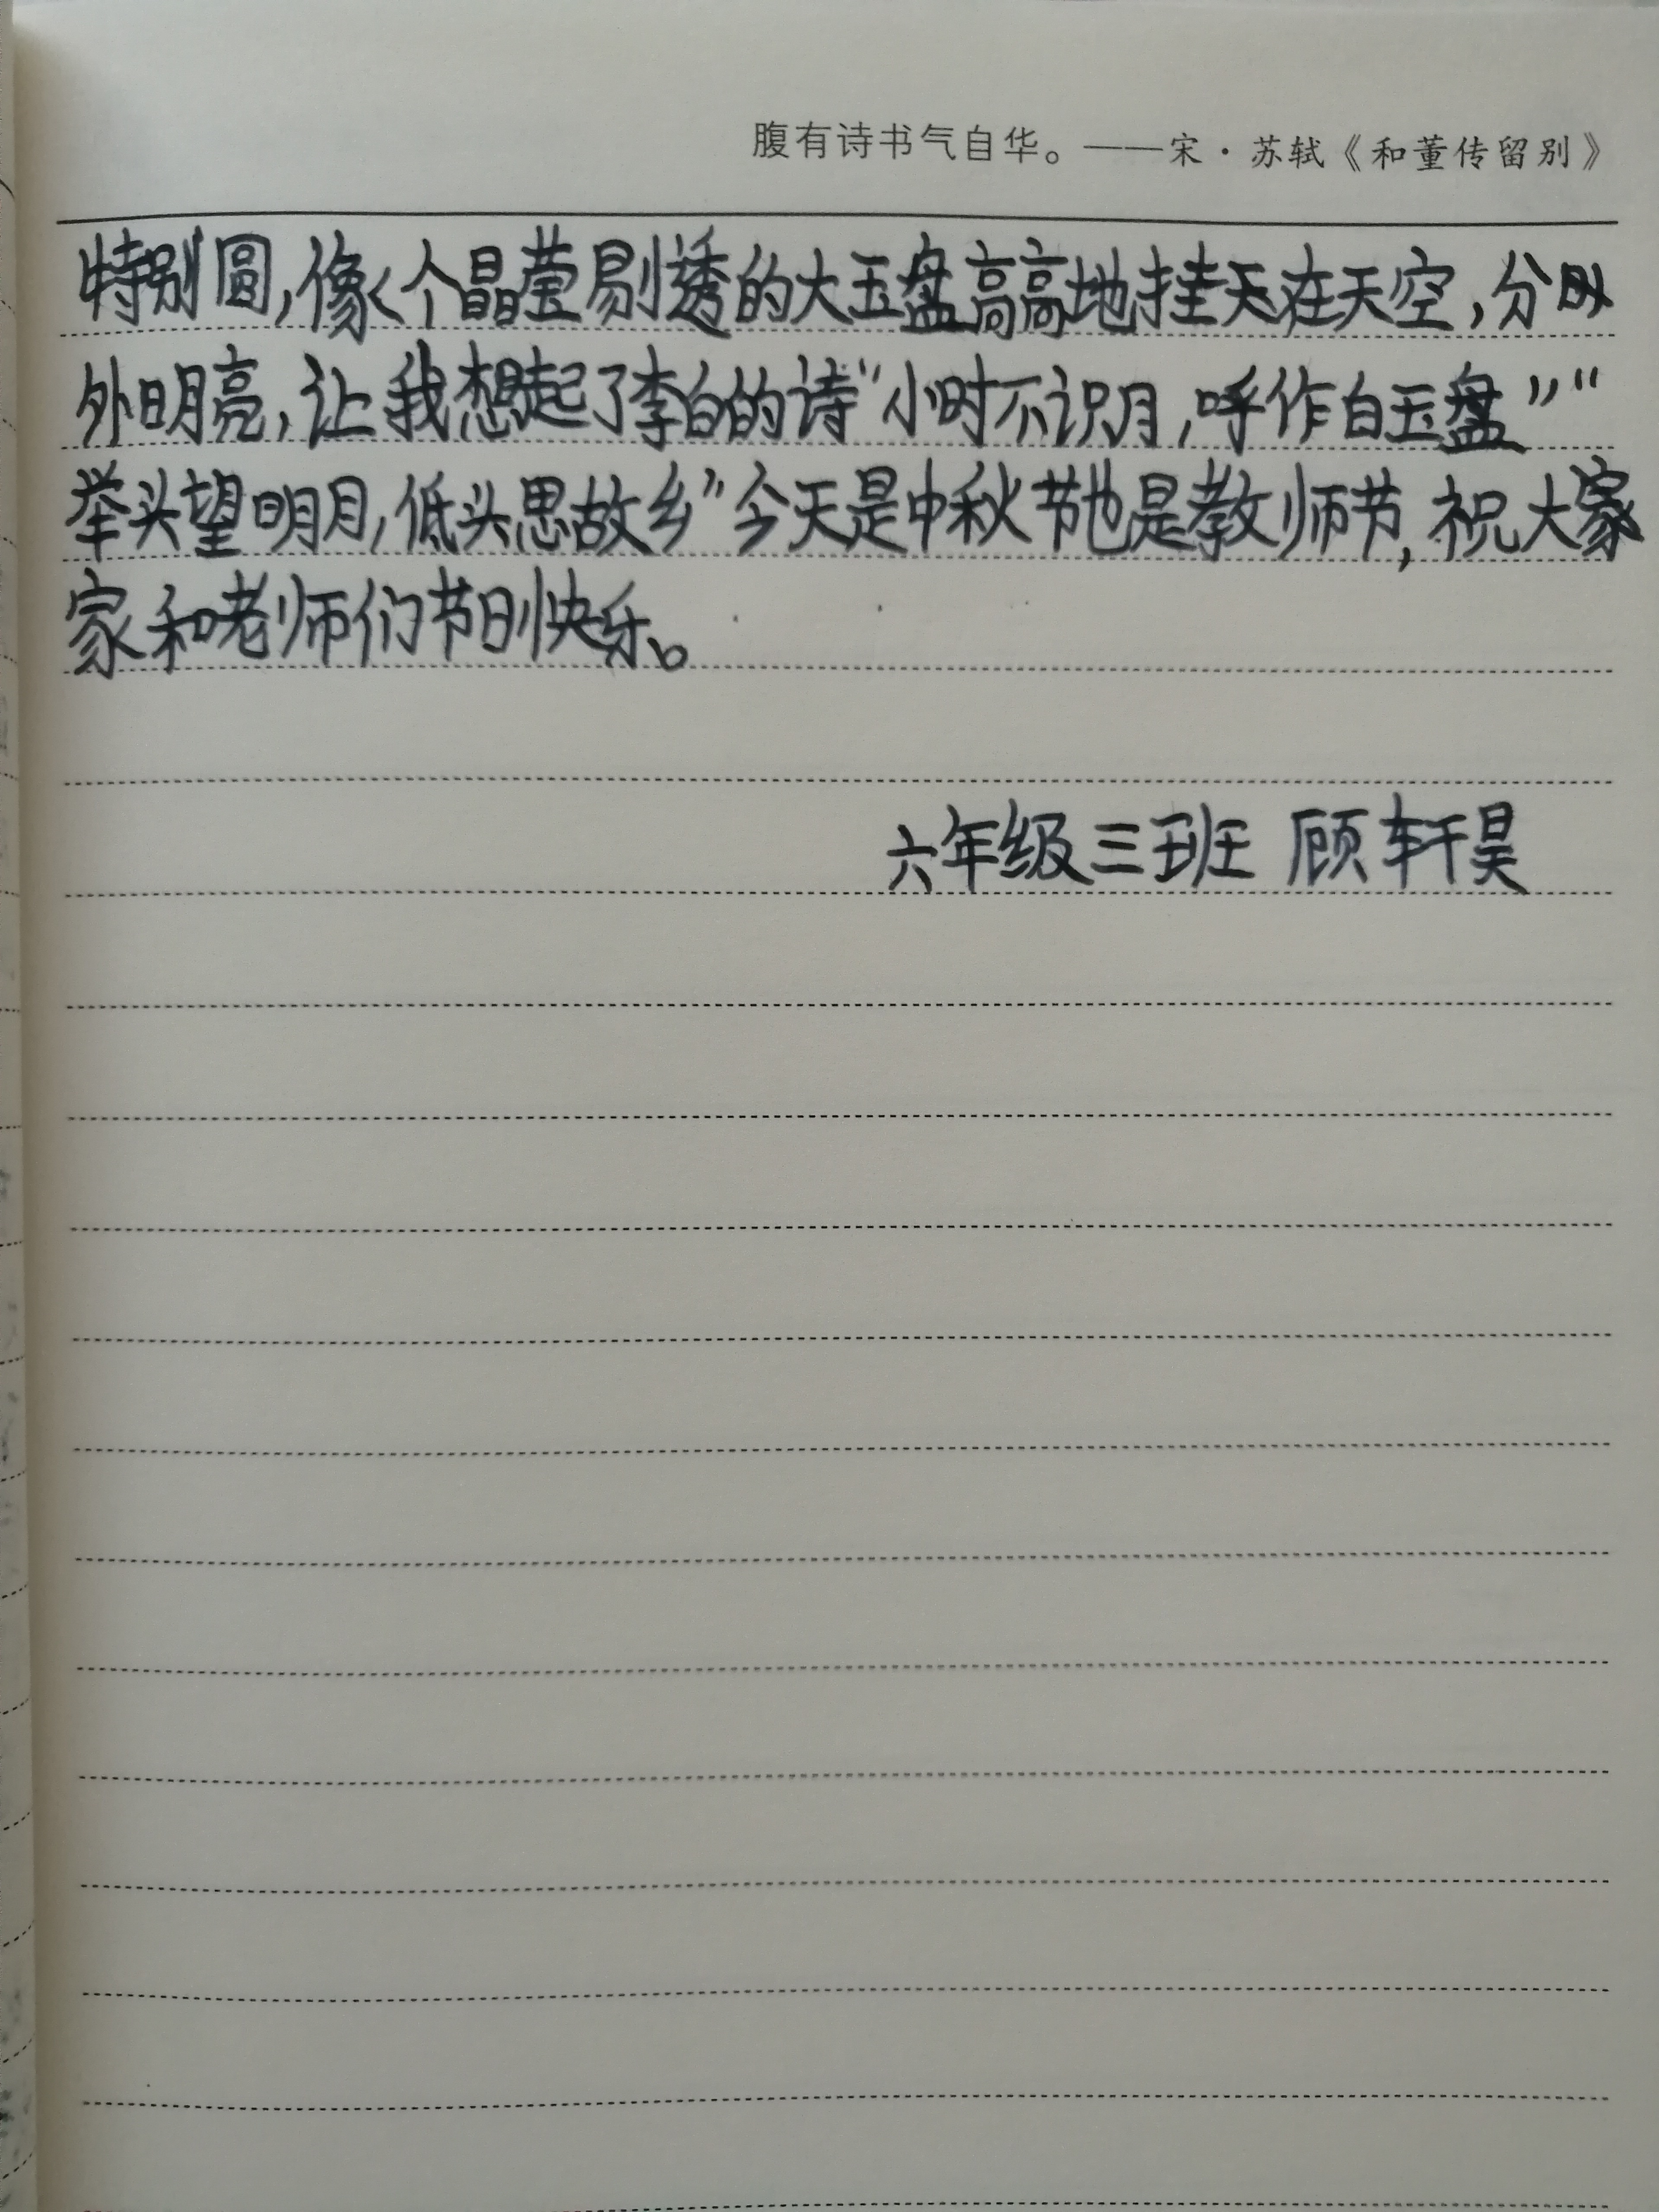 腹有诗书气自华。——宋·苏轼《和董传留别》
特别圆，像个晶莹剔透的大玉盘高高地挂天在天空，分
外明亮，让我想起了李白的诗“小时不识月，呼作白玉盘”“
举头望明月，低头思故乡”今天是中秋节也是教师节，祝大家
家和老师们节日快乐。
六年级三班 顾轩昊